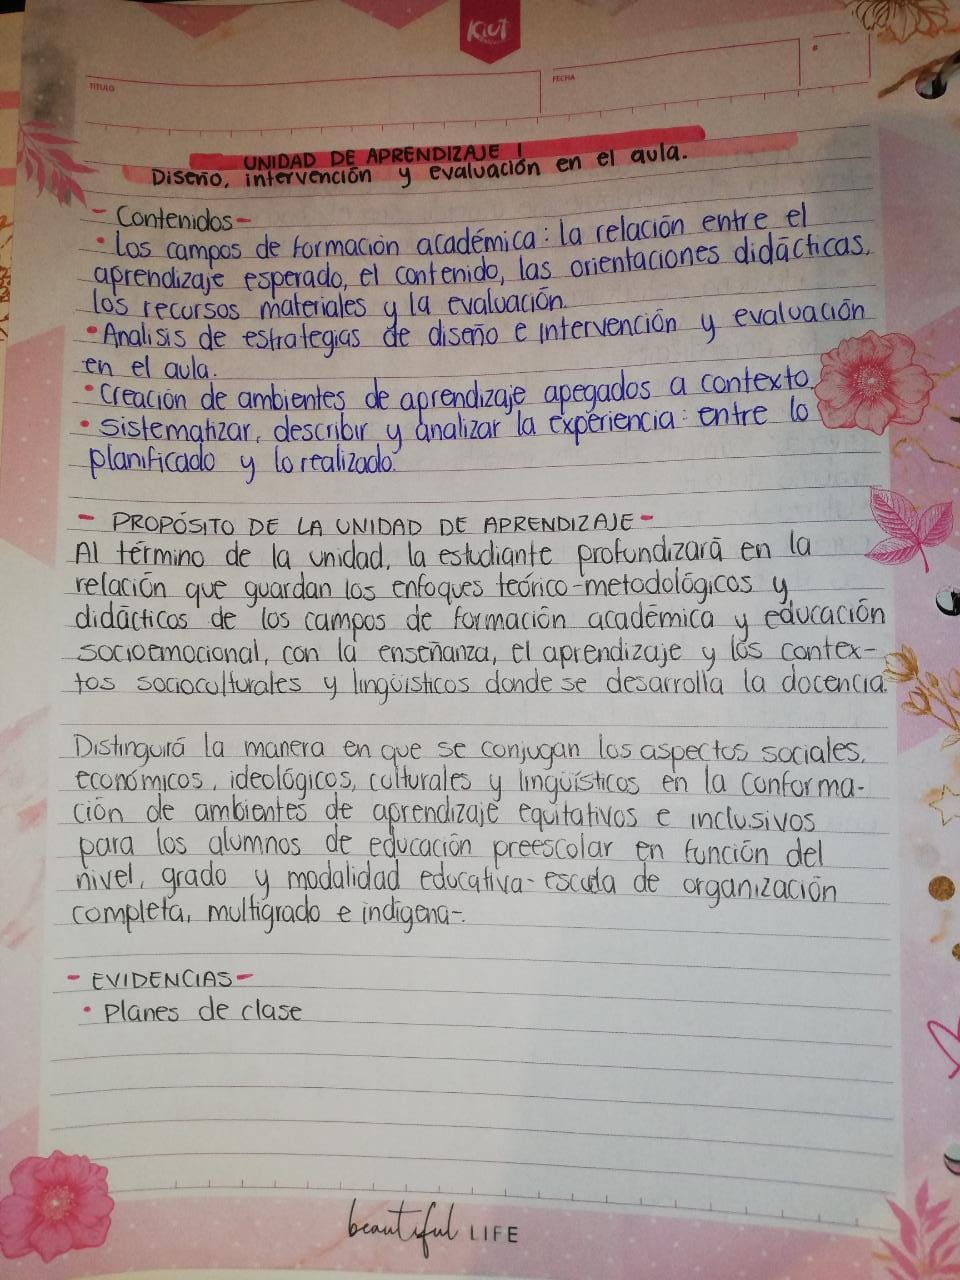 Kiut
TITULO
FECHA
UNIDAD DE APRENDIZAJE I
Diseño, intervención y evaluación en el aula.
- Contenidos -
• Los campos de formación académica: la relación entre el
aprendizaje esperado, el contenido, las orientaciones didácticas,
los recursos materiales y la evaluación.
• Analisis de estrategias de diseño e intervención y evaluación
en el aula.
• Creación de ambientes de aprendizaje apegados a contexto.
• Sistematizar, describir y analizar la experiencia: entre lo
planificado y lo realizado.
- PROPÓSITO DE LA UNIDAD DE APRENDIZAJE -
Al término de la unidad, la estudiante profundizará en la
relación que guardan los enfoques teórico-metodológicos y
didácticos de los campos de formación académica y educación
socioemocional, con la enseñanza, el aprendizaje y los contex-
tos socioculturales y lingüísticos donde se desarrolla la docencia.
Distinguirá la manera en que se conjugan los aspectos sociales,
económicos, ideológicos, culturales y lingüísticos en la conforma-
ción de ambientes de aprendizaje equitativos e inclusivos
para los alumnos de educación preescolar en función del
nivel, grado y modalidad educativa-escuela de organización
completa, multigrado e indigena-.
- EVIDENCIAS -
• Planes de clase
beautiful LIFE